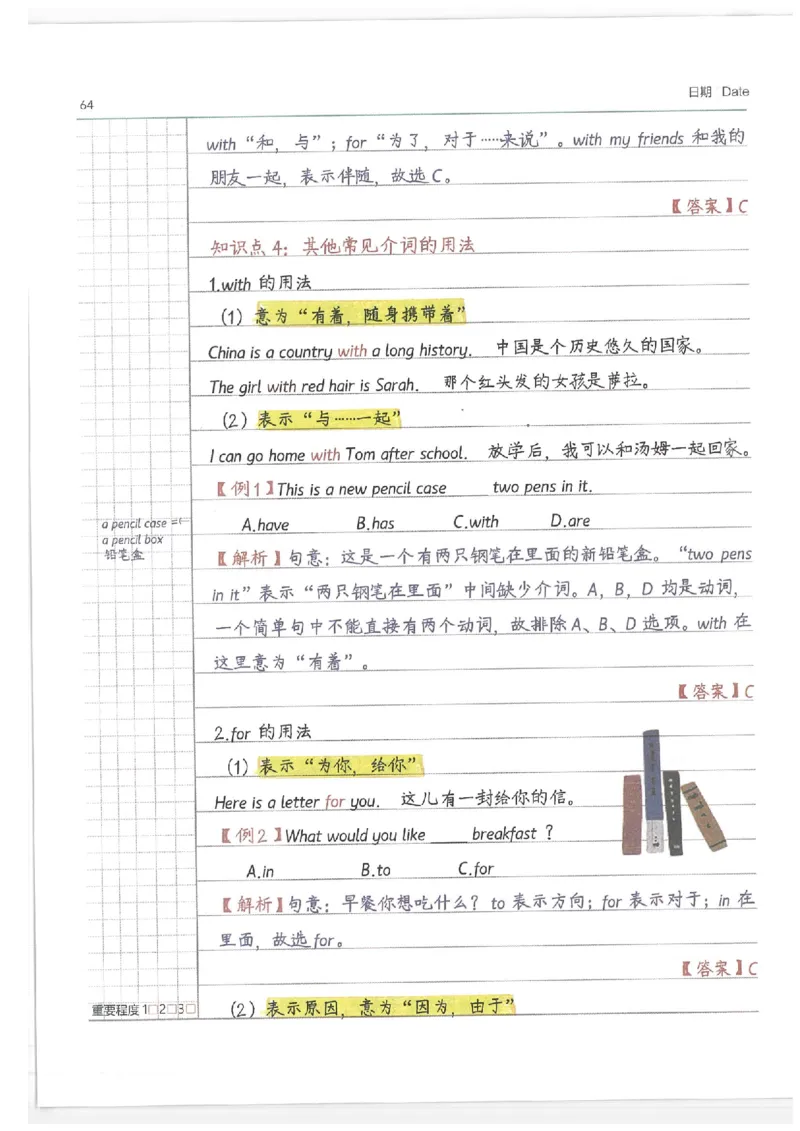 64
日期 Date
with“和，与”；for“为了，对于……来说”。with my friends 和我的
朋友一起，表示伴随，故选 C。
【答案】C
知识点 4：其他常见介词的用法
1.with 的用法
（1）意为“有着，随身携带着”
China is a country with a long history. 中国是个历史悠久的国家。
The girl with red hair is Sarah. 那个红头发的女孩是萨拉。
（2）表示“与……一起”
I can go home with Tom after school. 放学后，我可以和汤姆一起回家。
【例1】This is a new pencil case ____ two pens in it.
A.have B.has C.with D.are
a pencil case =
a pencil box
铅笔盒
【解析】句意：这是一个有两只钢笔在里面的新铅笔盒。“two pens
in it”表示“两只钢笔在里面”中间缺少介词。A，B，D 均是动词，
一个简单句中不能直接有两个动词，故排除 A、B、D 选项。with 在
这里意为“有着”。
【答案】C
2.for 的用法
（1）表示“为你，给你”
Here is a letter for you. 这儿有一封给你的信。
【例2】What would you like ____ breakfast？
A.in B.to C.for
【解析】句意：早餐你想吃什么？to 表示方向；for 表示对于；in 在
里面，故选 for。
【答案】C
（2）表示原因，意为“因为，由于”
重要程度 1□2□3□